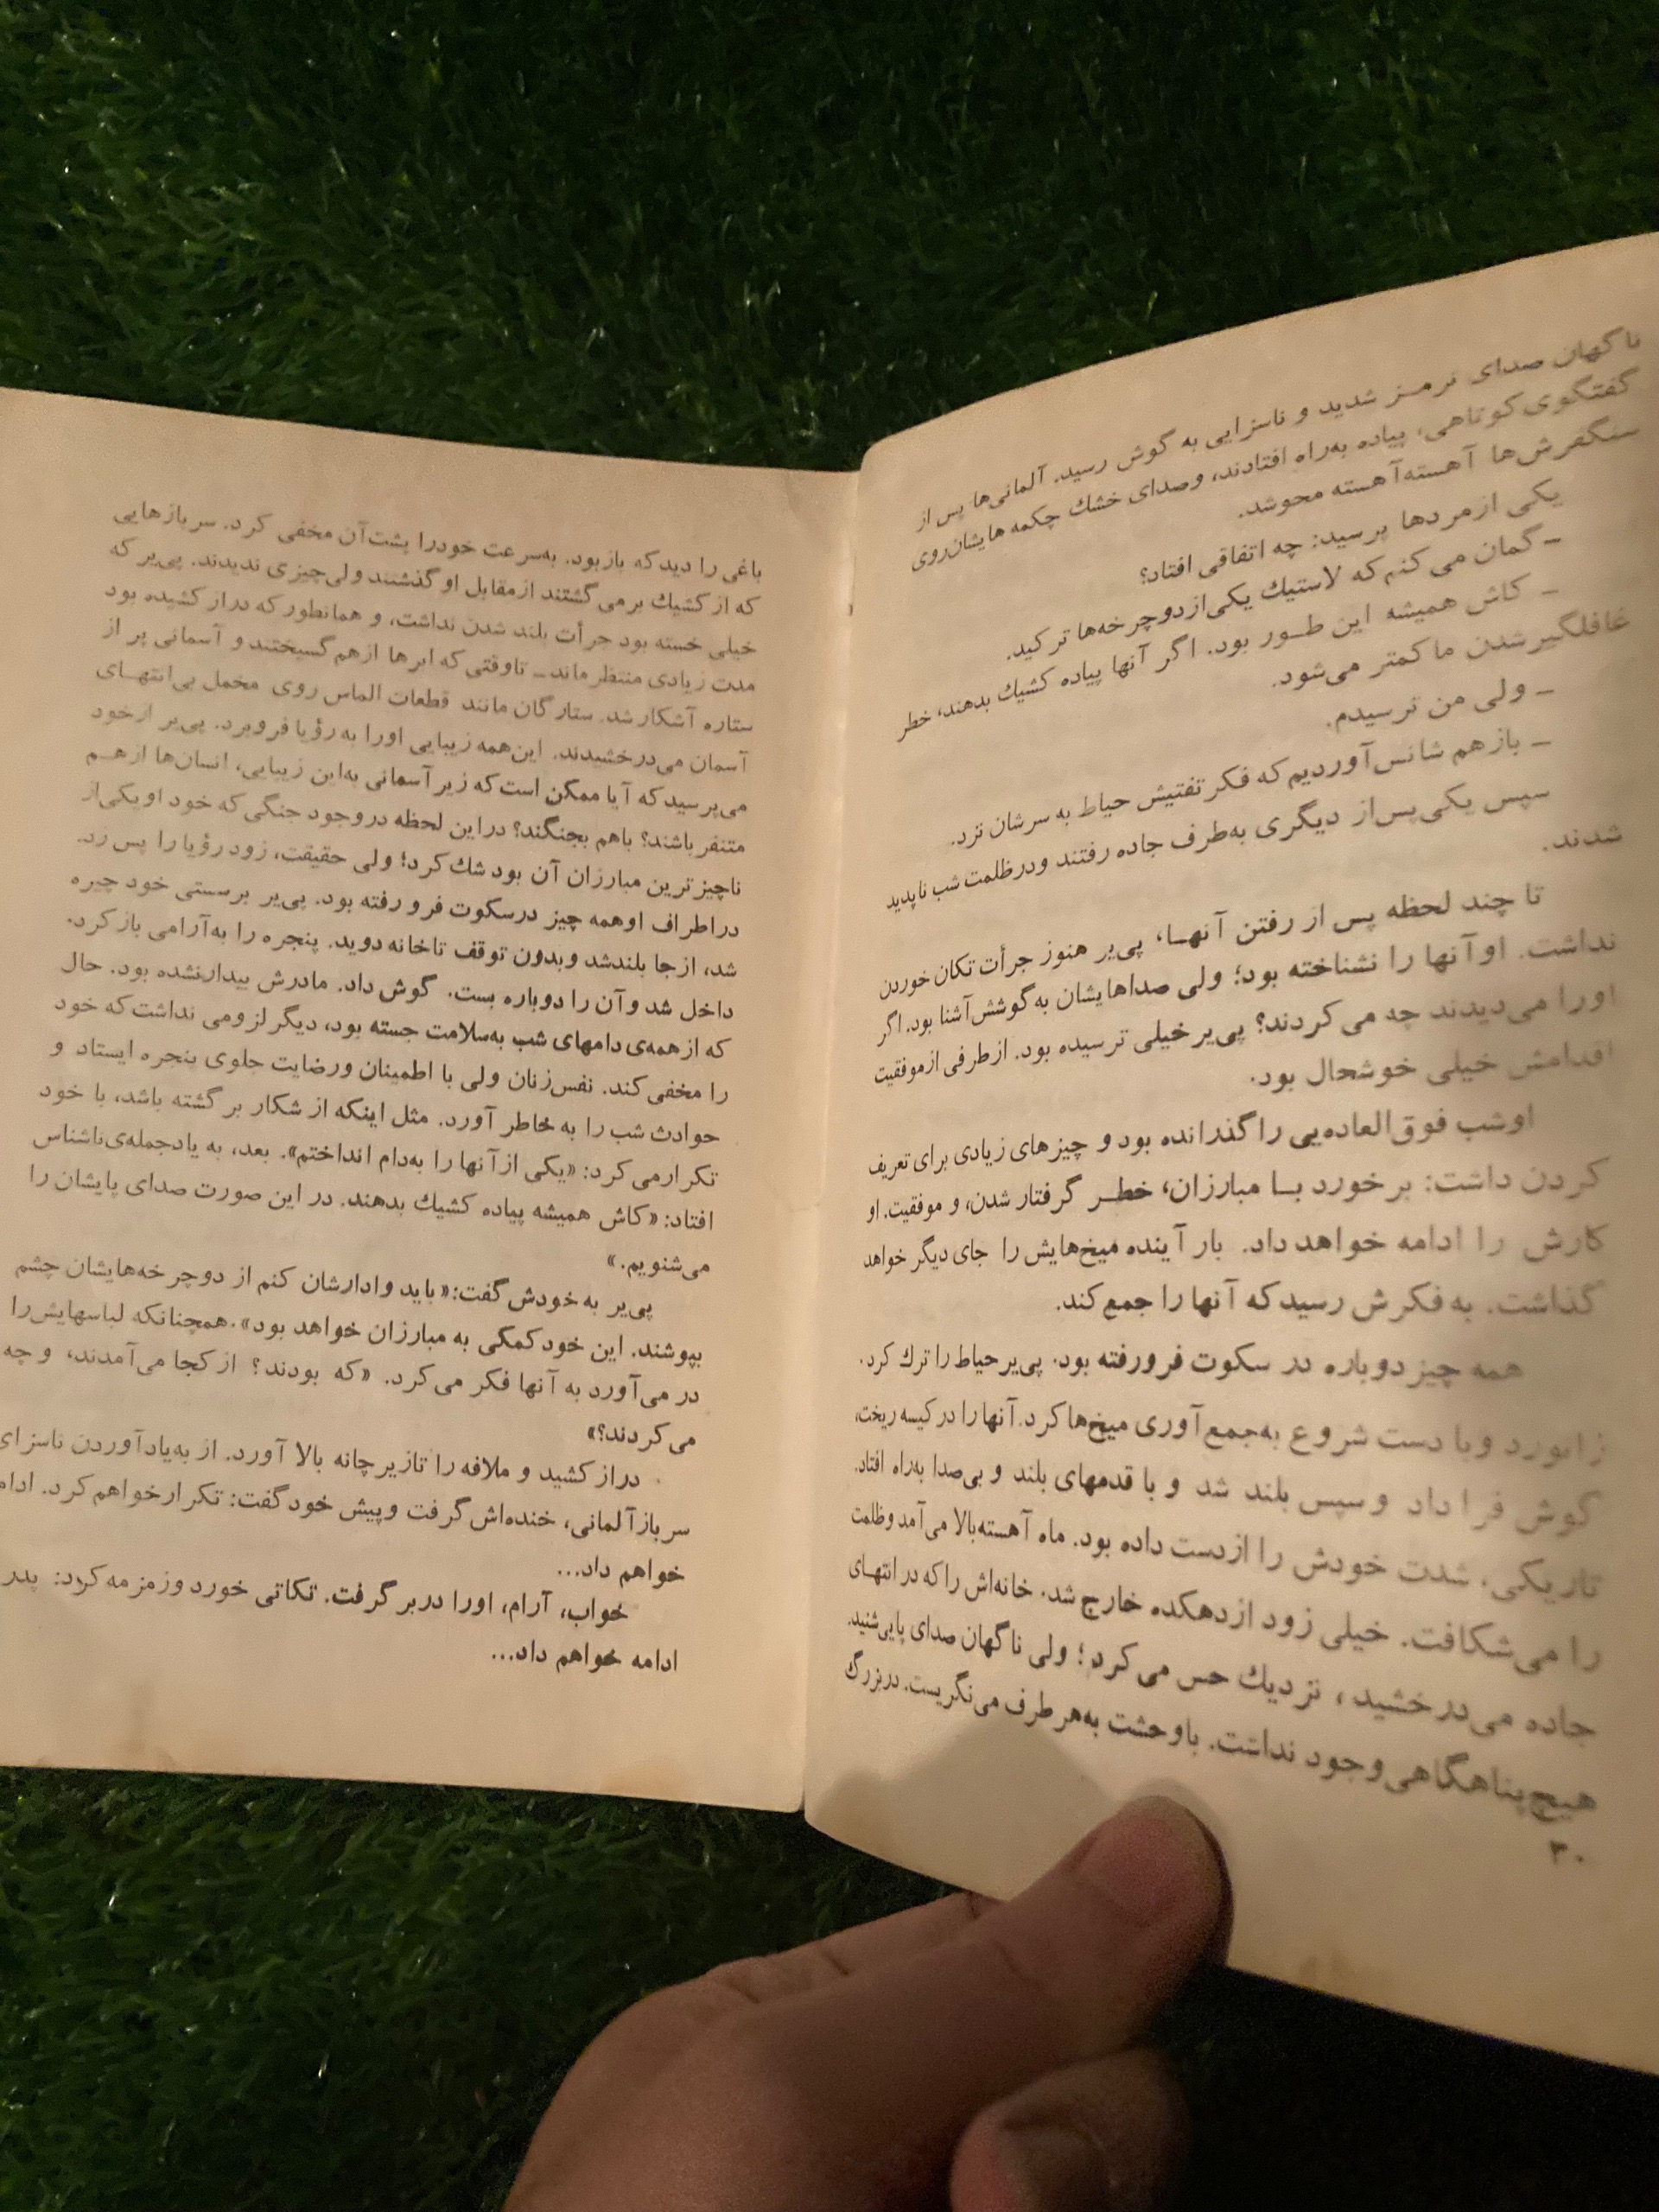 ناگهان صدای ترمـز شدید و ناسزایی به گوش رسید. آلمانی‌ها پس از
گفتگوی کوتاهی، پیاده به‌راه افتادند، وصدای خشك چکمه هایشان‌روی
سنگفرش‌ها آهسته‌آهسته محوشد.
یکی ازمردها پرسید: چه اتفاقی افتاد؟
ـ گمان می‌کنم که لاستیك یکی‌ازدوچرخه‌ها ترکید.
ـ کاش همیشه این طـور بود. اگر آنها پیاده کشیك بدهند، خطر
غافلگیرشدن ما کمتر می‌شود.
ـ ولی من ترسیدم.
ـ بازهم شانس‌آوردیم که فکر تفتیش حیاط به سرشان نزد.
سپس یکی‌پس‌از دیگری به‌طرف جاده رفتند ودرظلمت شب ناپدید
شدند.
تا چند لحظه پس از رفتن آنهـا، پی‌یر هنوز جرأت تکان خوردن
نداشت. اوآنها را نشناخته بود؛ ولی صداهایشان به‌گوشش‌آشنا بود. اگر
اورا می‌دیدند چه می‌کردند؟ پی‌یرخیلی ترسیده بود. ازطرفی ازموفقیت
اقدامش خیلی خوشحال بود.
اوشب فوق‌العاده‌یی راگذرانده بود و چیزهای زیادی برای تعریف
کردن داشت: برخورد بـا مبارزان، خطـر گرفتار شدن، و موفقیت. او
کارش را ادامه خواهد داد. بار آینده میخ‌هایش را جای دیگر خواهد
گذاشت. به‌فکرش رسیدکه آنها را جمع‌کند.
همه چیز دوباره در سکوت فرورفته بود. پی‌یرحیاط را ترك کرد.
زانوزد وبا دست شروع به‌جمع‌آوری میخ‌هاکرد. آنها را درکیسه ریخت،
گوش فرا داد وسپس بلند شد و با قدمهای بلند و بی‌صدا به‌راه افتاد.
تاریکی، شدت خودش را ازدست داده بود. ماه آهسته‌بالا می‌آمد وظلمت
را می‌شکافت. خیلی زود ازدهکده خارج شد. خانه‌اش راکه در انتهـای
جاده می‌درخشید، نزدیك حس می‌کرد؛ ولی ناگهان صدای پایی‌شنید.
هیچ‌پناهگاهی‌وجود نداشت. باوحشت به‌هرطرف می‌نگریست. دربزرگ
۳۰
باغی را دیدکه بازبود. به‌سرعت خودرا پشت‌آن مخفی کرد. سربازهایی
که ازکشیك برمی‌گشتند ازمقابل اوگذشتند ولی‌چیزی ندیدند. پی‌یر که
خیلی خسته بود جرأت بلند شدن نداشت، و همانطورکه درازکشیده بود
مدت زیادی منتظرماند ـ تاوقتی که ابرها ازهم گسیختند و آسمانی پر از
ستاره آشکارشد. ستارگان مانند قطعات الماس روی مخمل بی‌انتهـای
آسمان می‌درخشیدند. این‌همه زیبایی اورا به‌رؤیا فروبرد. پی‌یر ازخود
می‌پرسیدکه آیا ممکن است‌که زیرآسمانی به‌این زیبایی، انسان‌ها ازهـم
متنفرباشند؟ باهم بجنگند؟ دراین لحظه دروجود جنگی‌که خود اویکی‌از
ناچیزترین مبارزان آن بود شك کرد؛ ولی حقیقت، زود رؤیا را پس زد.
دراطراف اوهمه چیز درسکوت فرو رفته بود. پی‌یر برسستی خود چیره
شد، ازجا بلندشد وبدون توقف تاخانه دوید. پنجره را به‌آرامی بازکرد.
داخل شد وآن را دوباره بست. گوش داد. مادرش بیدارنشده بود. حال
که ازهمه‌ی دامهای شب به‌سلامت جسته بود، دیگرلزومی نداشت‌که خود
را مخفی‌کند. نفس‌زنان ولی با اطمینان ورضایت جلوی پنجره ایستاد و
حوادث شب را به خاطر آورد. مثل اینکه از شکار برگشته باشد، با خود
تکرارمی‌کرد: «یکی ازآنها را به‌دام انداختم». بعد، به یادجمله‌ی‌ناشناس
افتاد: «کاش همیشه پیاده کشیك بدهند. در این صورت صدای پایشان را
می‌شنویم.»
پی‌یر به‌خودش گفت: «باید وادارشان کنم از دوچرخه‌هایشان چشم
بپوشند. این خودکمکی به مبارزان خواهد بود». همچنانکه لباسهایش‌را
در می‌آورد به آنها فکر می‌کرد. «که بودند؟ ازکجا می‌آمدند، و چه
می‌کردند؟»
درازکشید و ملافه را تازیرچانه بالا آورد. از به‌یادآوردن ناسزای
سربازآلمانی، خنده‌اش‌گرفت وپیش خودگفت: تکرارخواهم‌کرد. ادامه
خواهم داد...
خواب، آرام، اورا دربرگرفت. تکانی خورد وزمزمه‌کرد: پدر
ادامه خواهم داد...